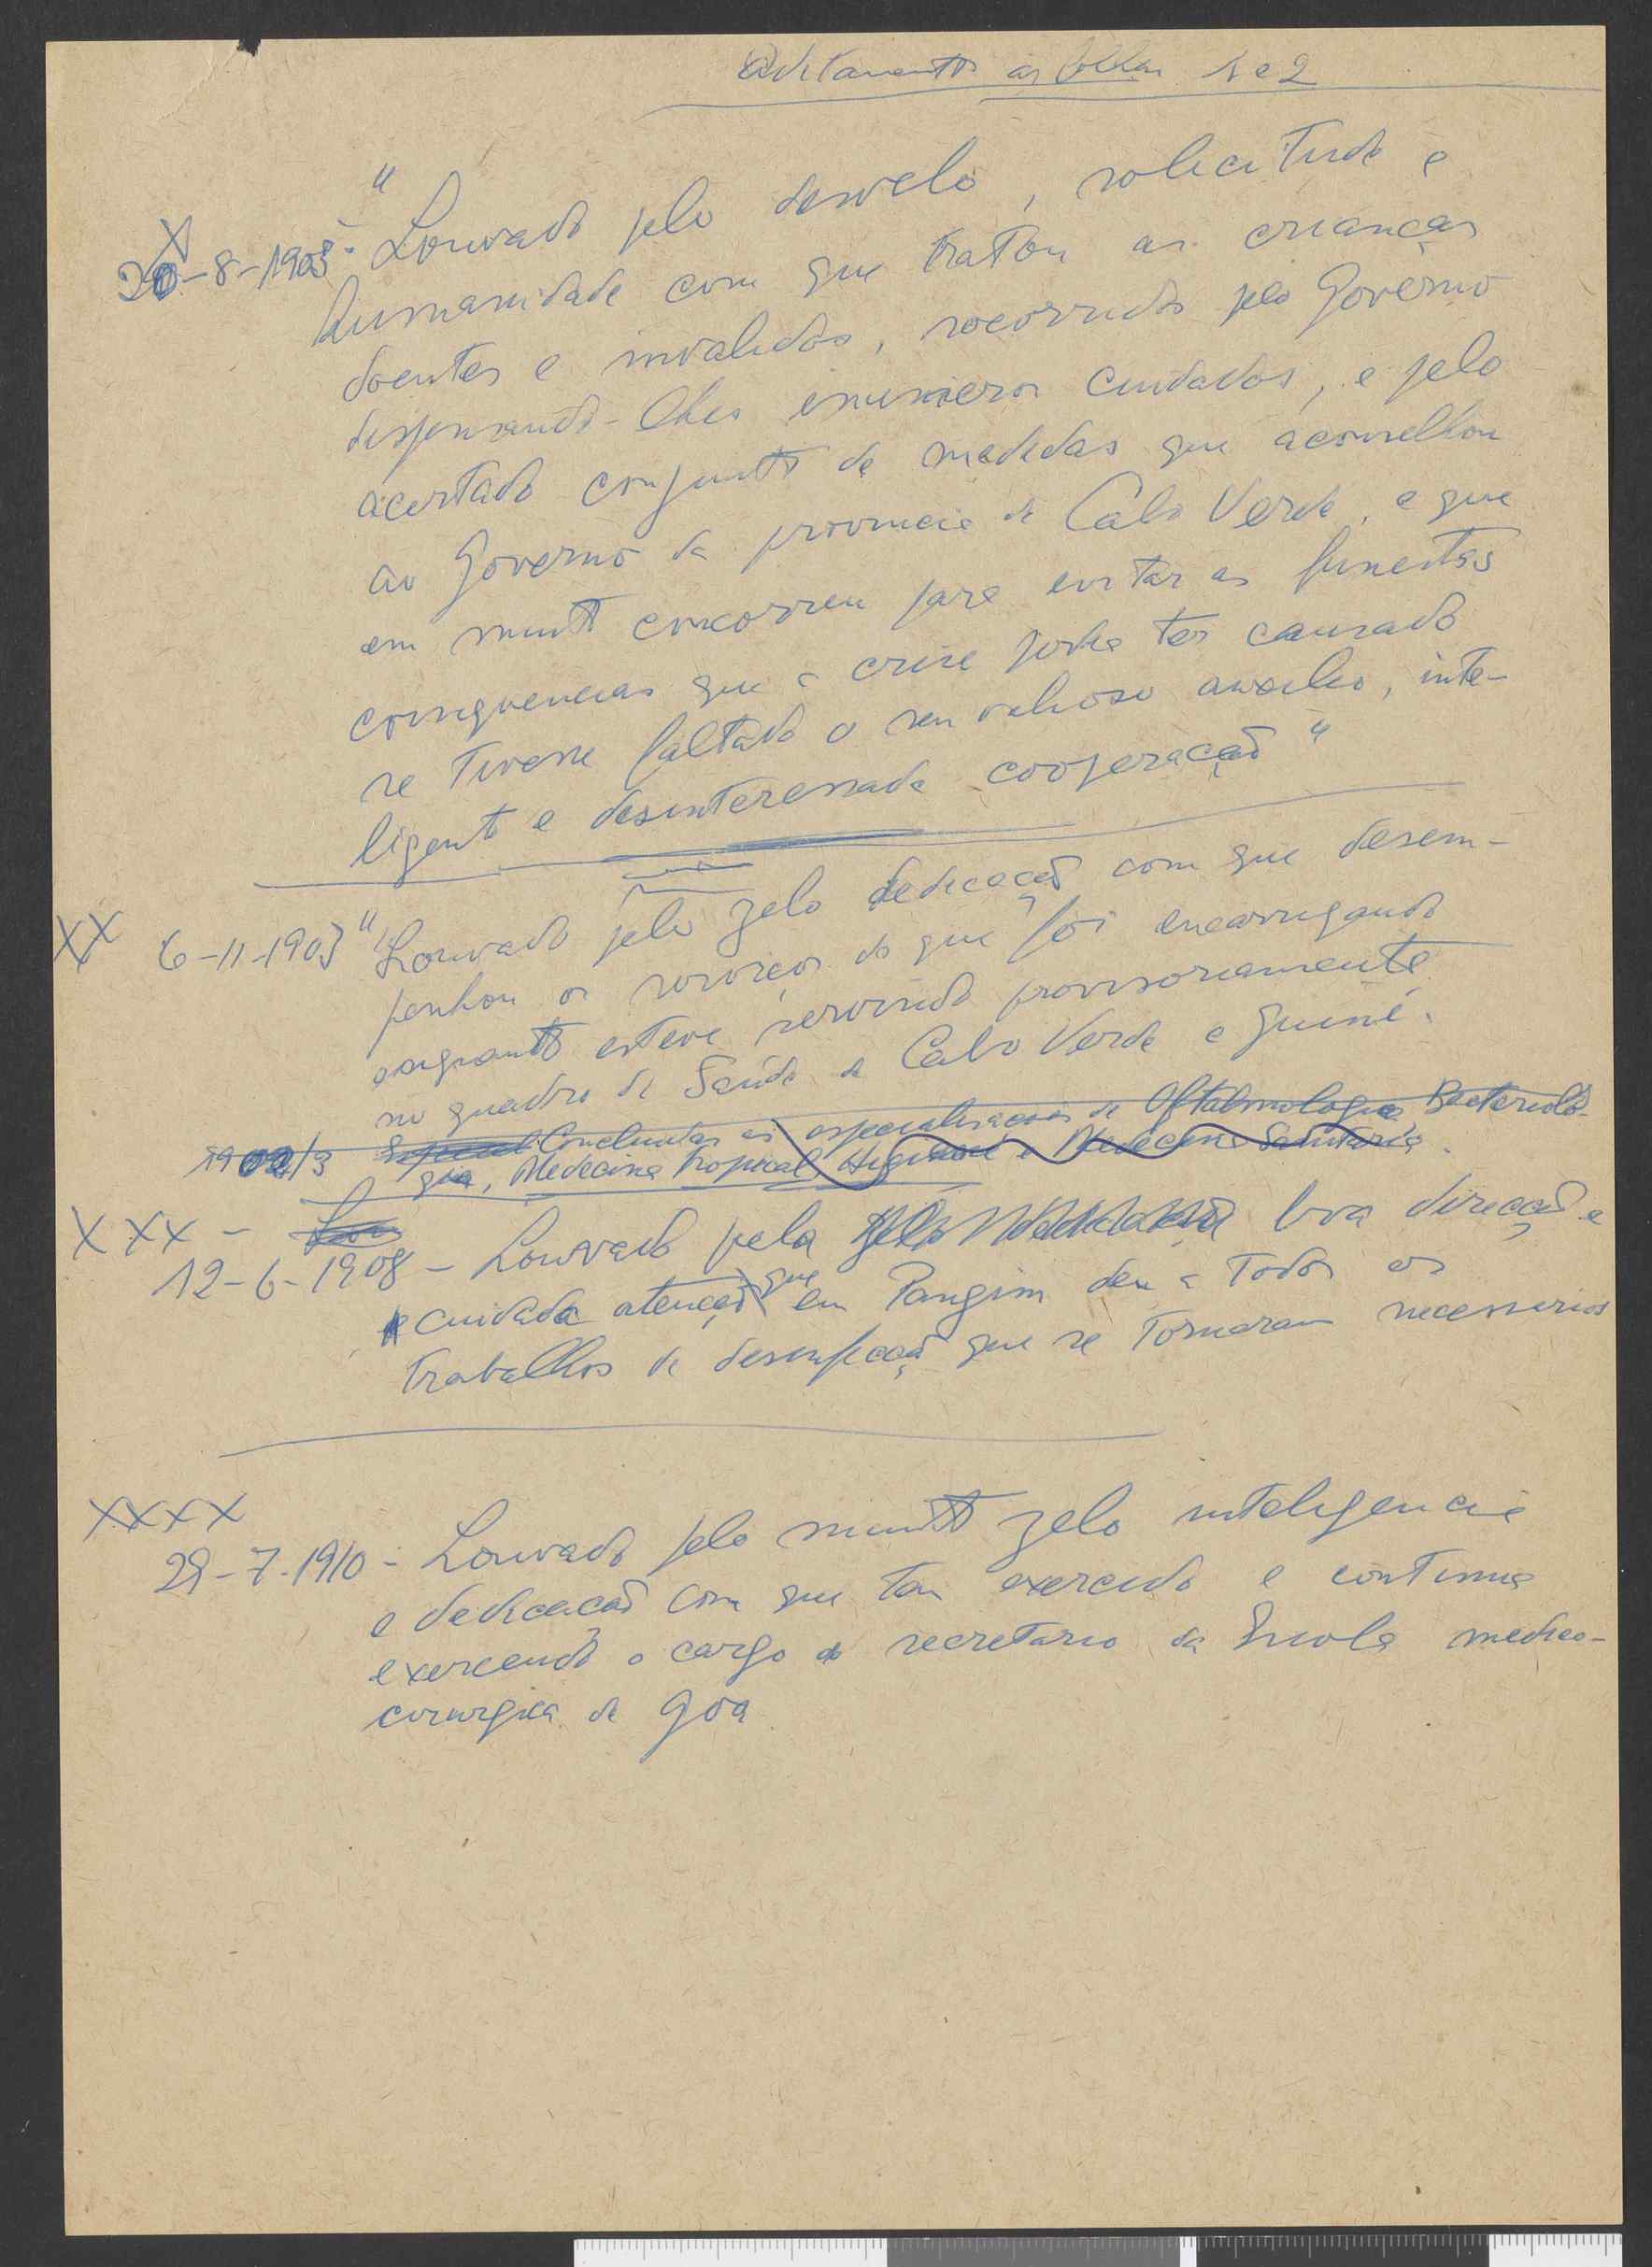 Aditamentos às folhas 1 e 2
X
20-8-1903 - "Louvado pelo desvelo, solicitude e
humanidade com que tratou as crianças
doentes e invalidas, socorridas pelo Govêrno
dispensando-lhes inumeros cuidados, e pelo
acertado conjunto de medidas que aconselhou
ao Governo da provincia de Cabo Verde, e que
em muito concorreu para evitar as funestas
consequencias que a crise podia ter causado
se tivesse faltado o seu valioso auxilio, inte-
ligente e desinteressada cooperação"
XX 6-11-1903 "Louvado pelo zelo dedicação com que desem-
penhou os serviços de que foi encarregando
enquanto esteve servindo provisoriamente
no quadro de Saúde de Cabo Verde e Guiné.
1902/3 Concluntas as especialisações de Oftalmologia Bacteriolo-
gia, Medecina Tropical, Higiene e Medecina Sanitaria.
XXX -
12-6-1908 - Louvado pela boa direcção e
cuidada atenção que em Pangim deu a todos os
trabalhos de desinfecção que se tornaram necessarios
XXXX
29-7-1910 - Louvado pelo muito zelo inteligencia
e dedicação com que tem exercido e continua
exercendo o cargo de secretario da Escola medico-
cirurgica de Goa